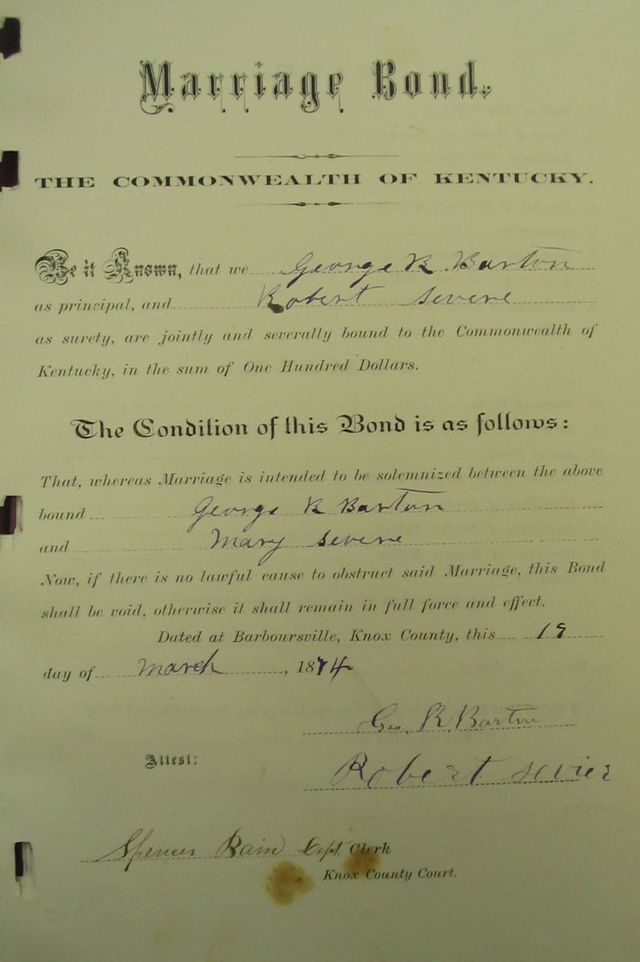 Marriage Bond.
THE COMMONWEALTH OF KENTUCKY.
Be it Known, that we George R Barton
as principal, and Robert Severe
as surety, are jointly and severally bound to the Commonwealth of
Kentucky, in the sum of One Hundred Dollars.
The Condition of this Bond is as follows:
That, whereas Marriage is intended to be solemnized between the above
bound George R Barton
and Mary Severe
Now, if there is no lawful cause to obstruct said Marriage, this Bond
shall be void, otherwise it shall remain in full force and effect.
Dated at Barboursville, Knox County, this 19
day of March, 1874
Geo. R. Barton
Attest:
Robert Sevier
Spencer Clerk
Knox County Court.